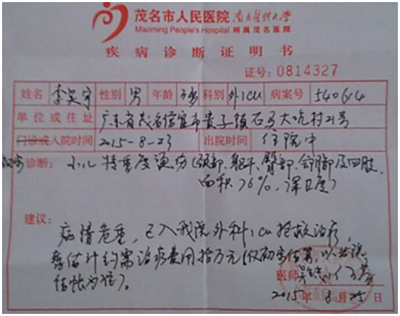 茂名市人民医院 南方医科大学
Maoming People's Hospital 附属茂名医院
疾病诊断证明书
证号:0814327
姓名 李 宇 性别 男 年龄 科别 外icu 病案号 540614
单位或住址 广东省茂名信宜市贵子镇石马大坑村21号
门诊或入院时间 2015-8-23 出院时间 住院中
诊断: 小儿特重度烫伤(颈部、躯干、臀部、 及四肢,
面积76%,深II度)
建议:
病情危重,已入我院外科icu抢救治疗
估计约需治疗费用拾万元(仅初步估算,以出院
结帐为准)。
医师
2015年8月25日